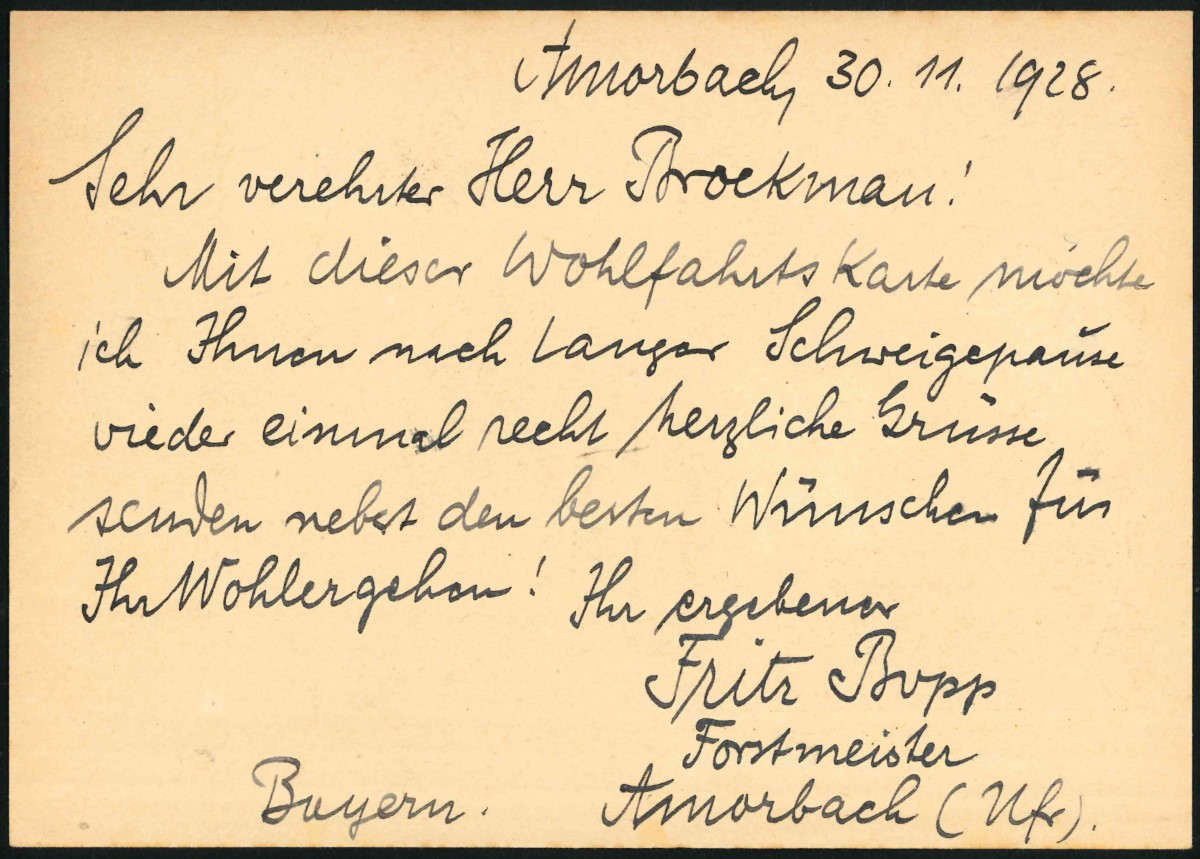 Amorbach, 30. 11. 1928.
Sehr verehrter Herr Brockman!
Mit dieser Wohlfahrtskarte möchte
ich Ihnen nach langer Schweigepause
wieder einmal recht herzliche Grüsse
senden nebst den besten Wünschen für
Ihr Wohlergehen! Ihr ergebener
Fritz Bopp
Forstmeister
Bayern. Amorbach (Ufr).